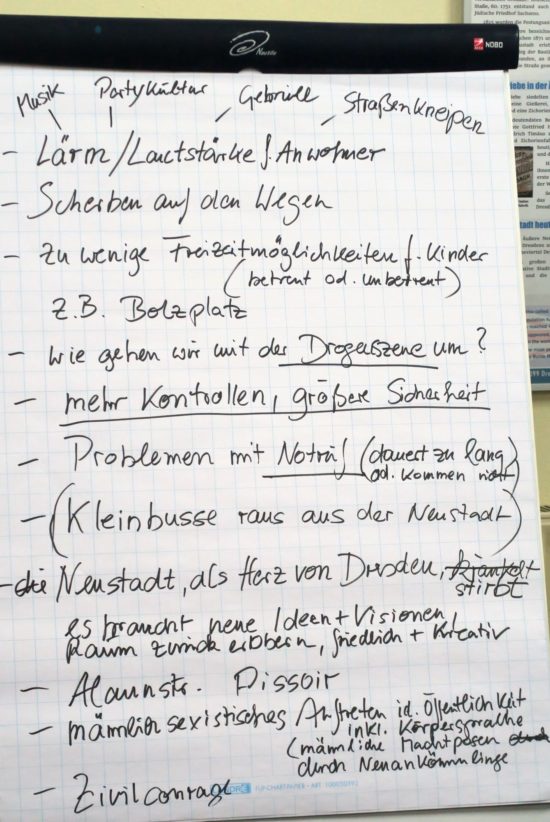 Nestlé
NOBO
Musik Partykultur Gebrüll Straßenkneipen
- Lärm/Lautstärke f. Anwohner
- Scherben auf den Wegen
- zu wenige Freizeitmöglichkeiten f. Kinder
(betreut od. unbetreut)
z.B. Bolzplatz
- wie gehen wir mit der Drogenszene um?
- mehr Kontrollen, größere Sicherheit
- Problemen mit Notruf (dauert zu lang
od. kommen nicht)
- (Kleinbusse raus aus der Neustadt)
- die Neustadt, als Herz von Dresden, kränkelt
stirbt
es braucht neue Ideen + Visionen,
Raum zurück erobern, friedlich + kreativ
- Alaunstr. Pissoir
- männlich sexistisches Auftreten i.d. Öffentlichkeit
inkl. Körpersprache
(männliche Machtposen durch
durch Neuankömmlinge
- Zivilcourage
FLIPCHARTPAPIER - ART.